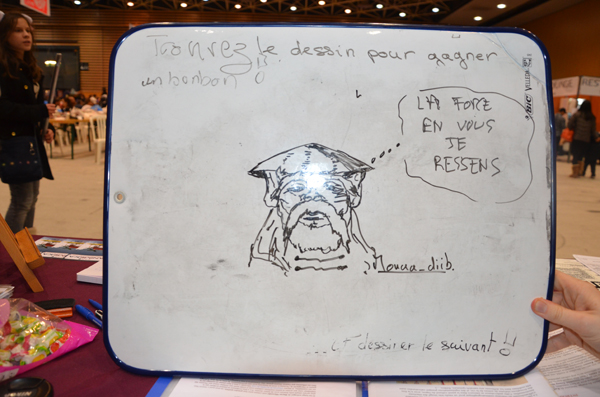 Trouvez le dessin pour gagner
un bonbon !!
LA FORCE
EN VOUS
JE
RESSENS
Mouaa_diib.
... et dessiner le suivant !!